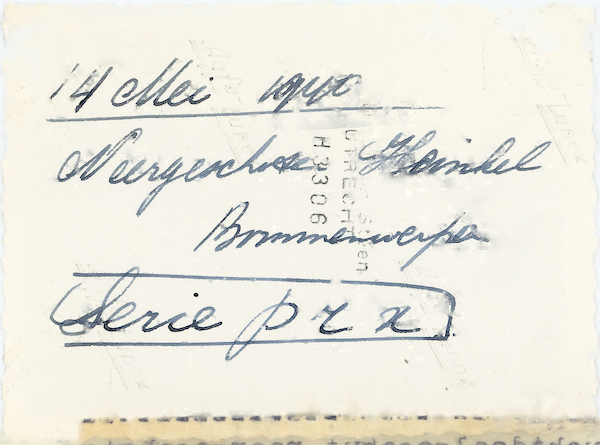 14 Mei 1940
Neergeschoten Heinkel
Bommenwerper
Serie p r x
UTRECHT
H3306